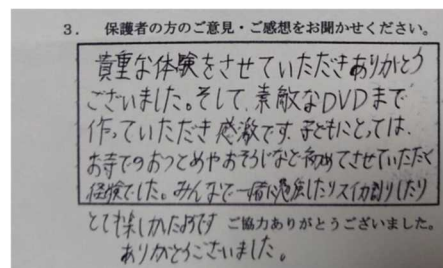 3. 保護者の方のご意見・ご感想をお聞かせください。
貴重な体験をさせていただきありがとう
ございました。そして、素敵なDVDまで
作っていただき感激です。子どもにとっては、
お寺でのおつとめやおそうじなど初めてさせていただく
経験でした。みんなで一緒に过ごしたりスイカ割りしたり
とても楽しかったようです ご協力ありがとうございました。
ありがとうございました。